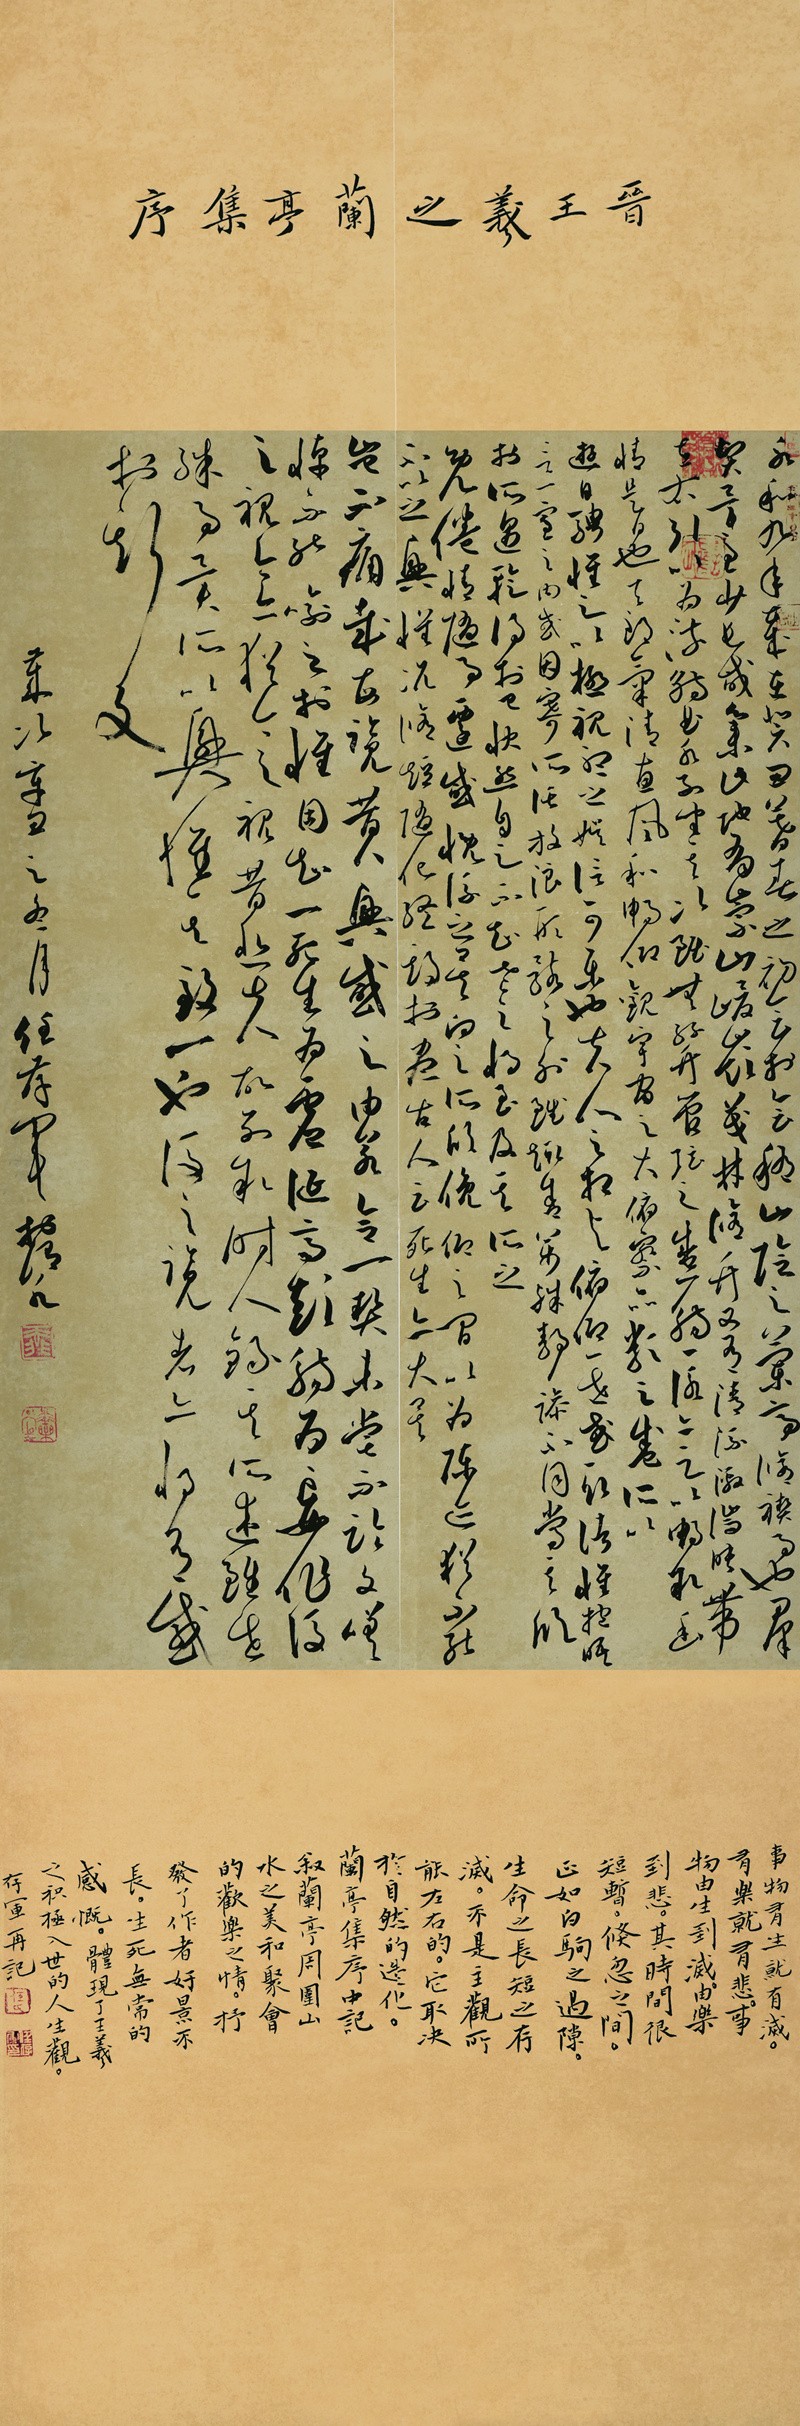 晉王羲之蘭亭集序
永和九年歲在癸丑暮春之初會於會稽山陰之蘭亭脩禊事也羣
賢畢至少長咸集此地有崇山峻嶺茂林脩竹又有清流激湍映帶
左右引以為流觴曲水列坐其次雖無絲竹管弦之盛一觴一詠亦足以暢敘幽
情是日也天朗氣清惠風和暢仰觀宇宙之大俯察品類之盛所以
遊目騁懷足以極視聽之娛信可樂也夫人之相與俯仰一世或取諸懷抱晤
言一室之內或因寄所託放浪形骸之外雖趣舍萬殊靜躁不同當其欣
於所遇暫得於己快然自足不知老之將至及其所之
既倦情隨事遷感慨係之矣向之所欣俛仰之間以為陳迹猶不能
不以之興懷況脩短隨化終期於盡古人云死生亦大矣
豈不痛哉每覽昔人興感之由若合一契未嘗不臨文嗟
悼不能喻之於懷固知一死生為虛誕齊彭殤為妄作後
之視今亦猶今之視昔悲夫故列敘時人錄其所述雖世
殊事異所以興懷其致一也後之覽者亦將有感
於斯文
歲次辛丑之冬月任存軍
事物有生就有滅。
有樂就有悲。事
物由生到滅。由樂
到悲。其時間很
短暫。倏忽之間。
正如白駒之過隙。
生命之長短之存
滅。不是主觀所
能左右的。它取決
於自然的造化。
蘭亭集序中記
敘蘭亭周圍山
水之美和聚會
的歡樂之情。抒
發了作者好景不
長。生死無常的
感慨。體現了王羲
之积極入世的人生觀。
存軍再記